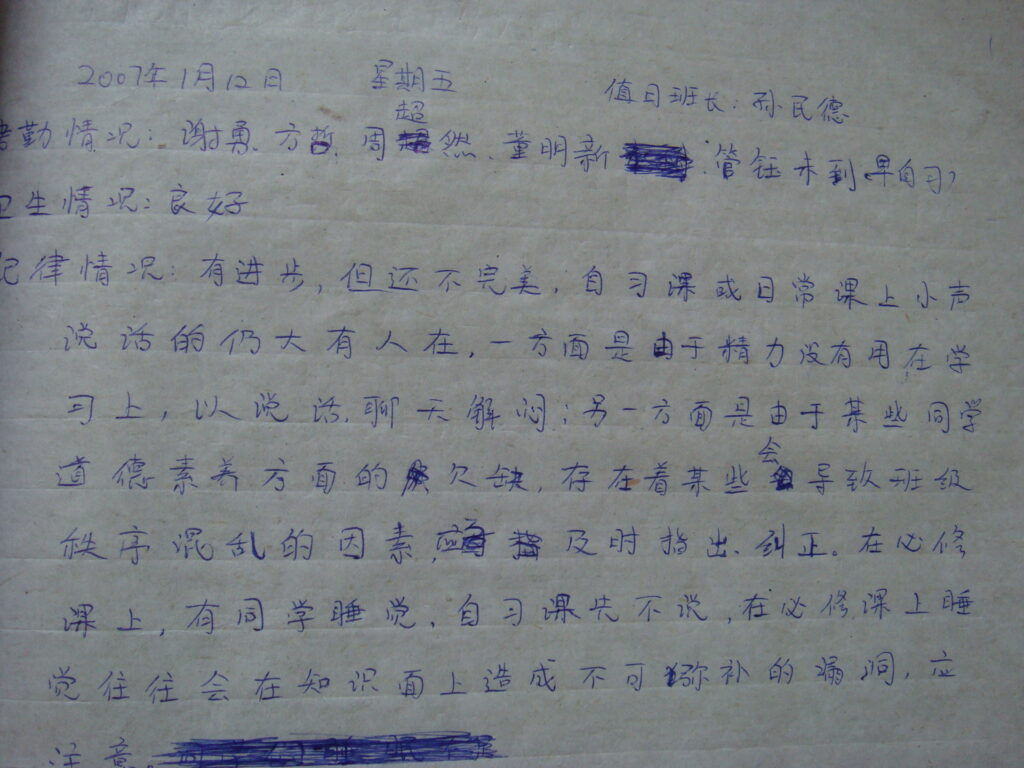 2007年1月12日 星期五 值日班长:孙民德
勤情况:谢勇、方哲、周超然、董明新、管钰未到早自习,
卫生情况:良好
纪律情况:有进步,但还不完美,自习课或日常课上小声
说话的仍大有人在,一方面是由于精力没有用在学
习上,以说话、聊天解闷;另一方面是由于某些同学
道德素养方面的欠缺,存在着某些会导致班级
秩序混乱的因素,应及时指出、纠正。在必修
课上,有同学睡觉,自习课先不说,在必修课上睡
觉往往会在知识面上造成不可弥补的漏洞,应
注意。